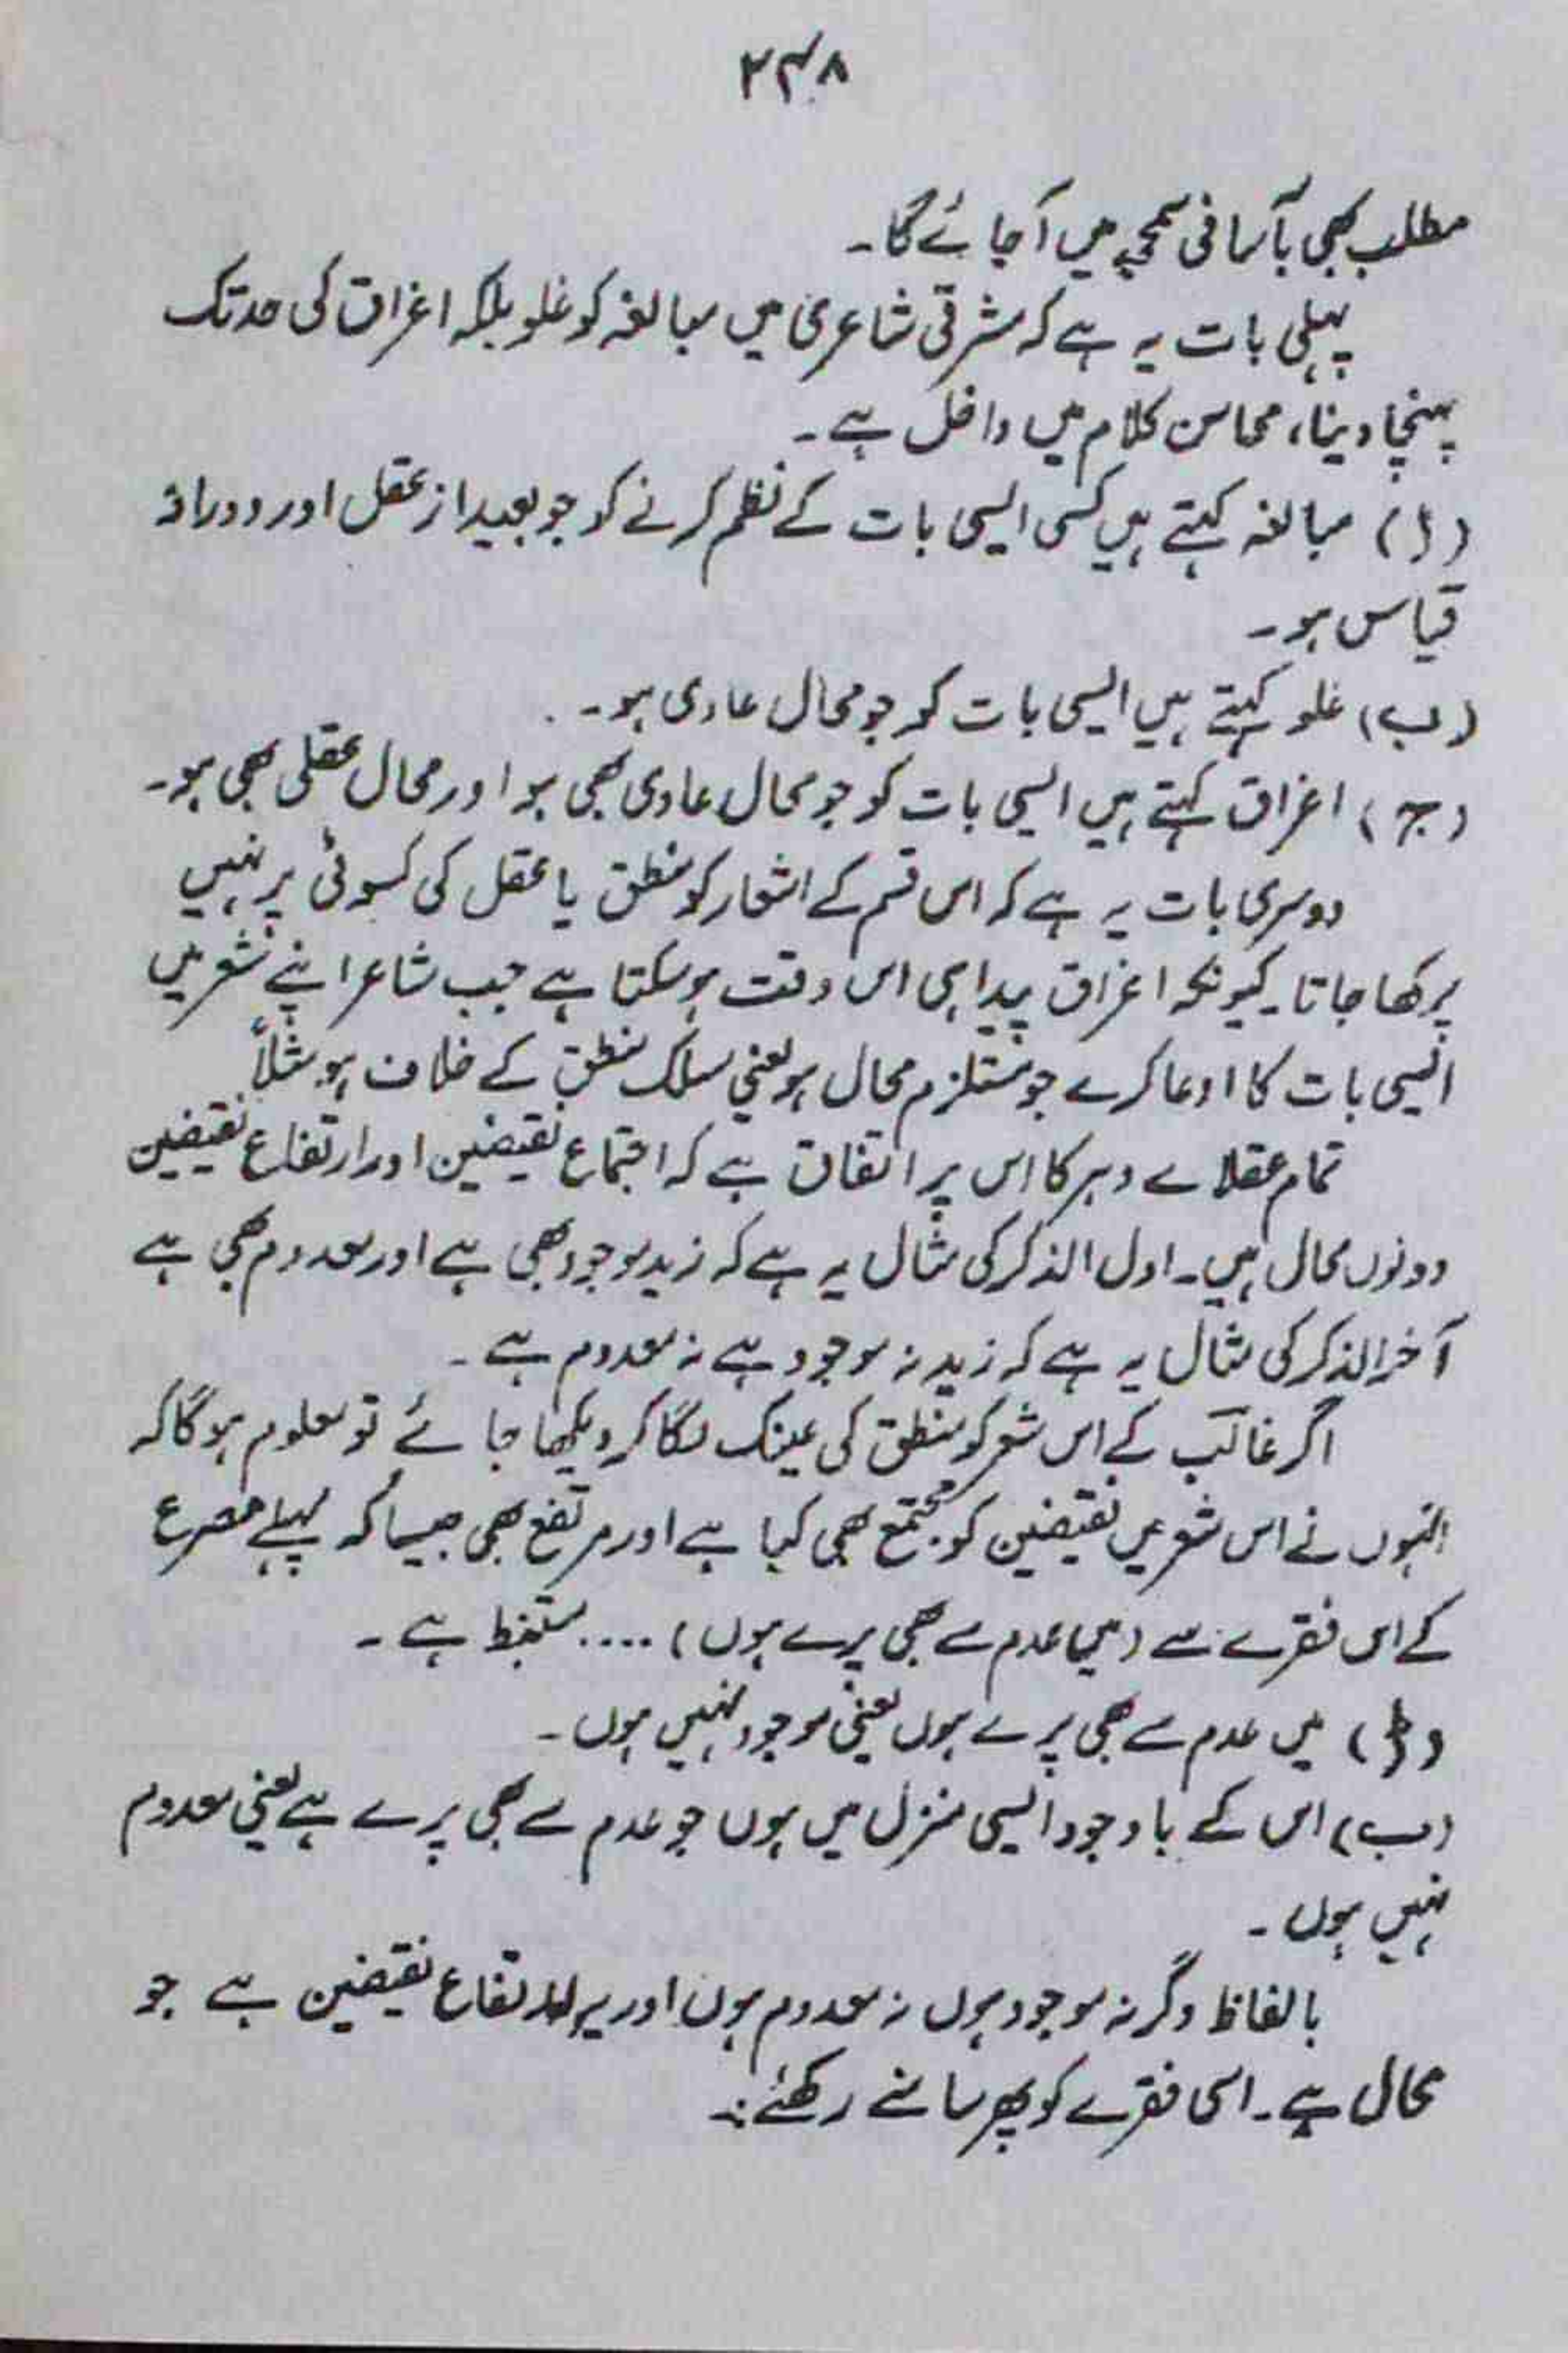 ۲۳۸
مطلب بھی بآسانی سمجھ میں آجائے گا۔
پہلی بات یہ ہے کہ مشرقی شاعری میں مبالغہ کو غلو بلکہ اغراق کی حد تک
پہنچا دینا، محاسن کلام میں داخل ہے۔
(ا) مبالغہ کہتے ہیں کسی ایسی بات کے نظم کرنے کو جو بعید از عقل اور دور از
قیاس ہو۔
(ب) غلو کہتے ہیں ایسی بات کو جو محال عادی ہو۔
(ج) اغراق کہتے ہیں ایسی بات کو جو محال عادی بھی ہو اور محال عقلی بھی ہو۔
دوسری بات یہ ہے کہ اس قسم کے اشعار کو منطق یا عقل کی کسوٹی پر نہیں
پرکھا جاتا۔ کیونکہ اغراق پیدا ہی اس وقت ہوسکتا ہے جب شاعر اپنے شعر میں
ایسی بات کا ادعا کرے جو مستلزم محال ہو یعنی مسلک منطق کے خلاف ہو مثلاً
تمام عقلاے دہر کا اس پر اتفاق ہے کہ اجتماع نقیضین اور ارتفاع نقیضین
دونوں محال ہیں۔ اول الذکر کی مثال یہ ہے کہ زید موجود بھی ہے اور معدوم بھی ہے
آخر الذکر کی مثال یہ ہے کہ زید نہ موجود ہے نہ معدوم ہے۔
اگر غالب کے اس شعر کو منطق کی عینک لگا کر دیکھا جائے تو معلوم ہوگا کہ
انہوں نے اس شعر میں نقیضین کو مجتمع بھی کیا ہے اور مرتفع بھی جیسا کہ پہلے مصرع
کے اس فقرے سے (میں عدم سے بھی پرے ہوں) .... مستنبط ہے۔
(ا) میں عدم سے بھی پرے ہوں یعنی موجود نہیں ہوں۔
(ب) اس کے باوجود ایسی منزل میں ہوں جو عدم سے بھی پرے ہے یعنی معدوم
نہیں ہوں۔
بالفاظ دگر نہ موجود ہوں نہ معدوم ہوں اور یہ ارتفاع نقیضین ہے جو
محال ہے۔ اسی فقرے کو پھر سامنے رکھئے:۔